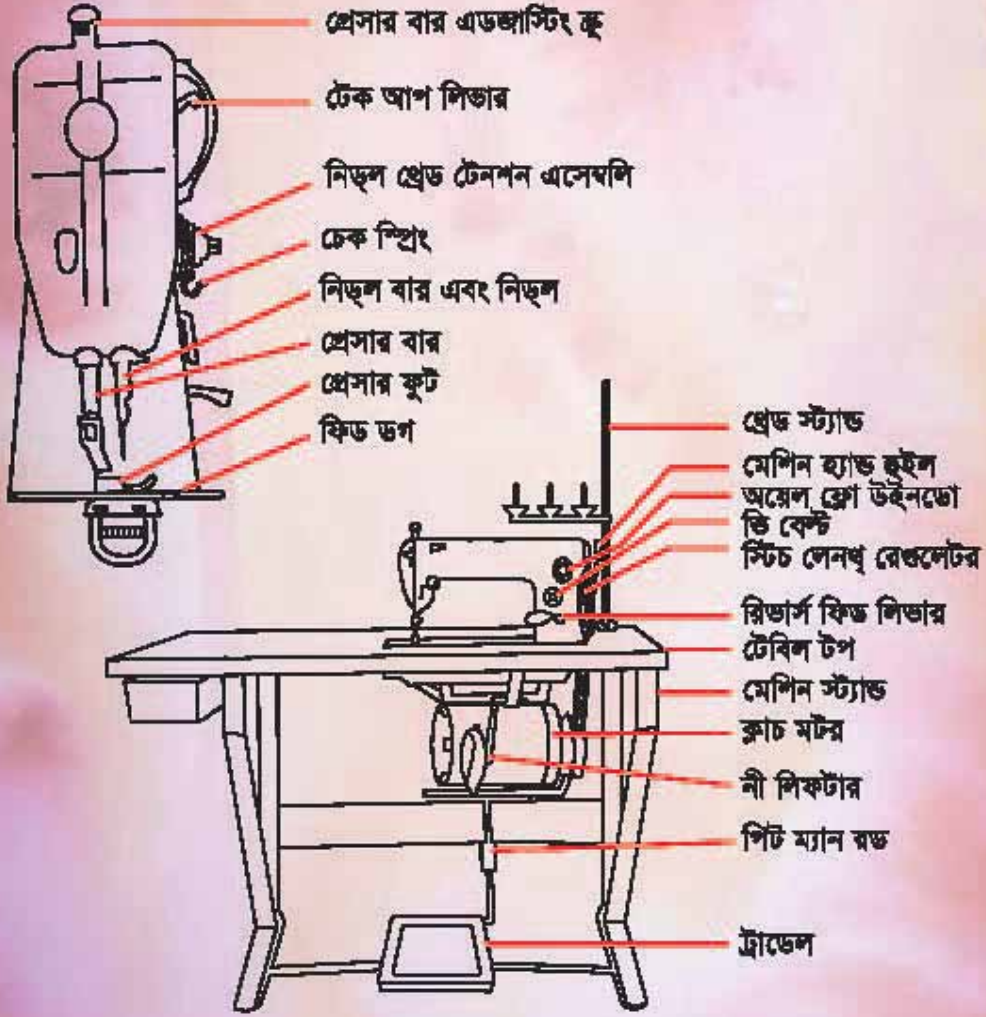 প্রেসার বার এডজাস্টিং স্ক্রু
টেক আপ লিভার
নিড্‌ল থ্রেড টেনশন এসেম্বলি
চেক স্প্রিং
নিড্‌ল বার এবং নিড্‌ল
প্রেসার বার
প্রেসার ফুট
ফিড ডগ
থ্রেড স্ট্যান্ড
মেশিন হ্যান্ড হুইল
অয়েল ফ্লো উইনডো
ভি বেল্ট
স্টিচ লেনথ্ রেগুলেটর
রিভার্স ফিড লিভার
টেবিল টপ
মেশিন স্ট্যান্ড
ক্লাচ মটর
নী লিফটার
পিট ম্যান রড
ট্রাডেল